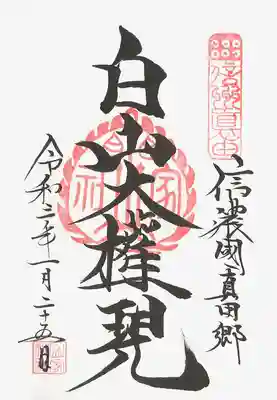 信濃國真田郷
白山大権現
令和二年一月二十五日